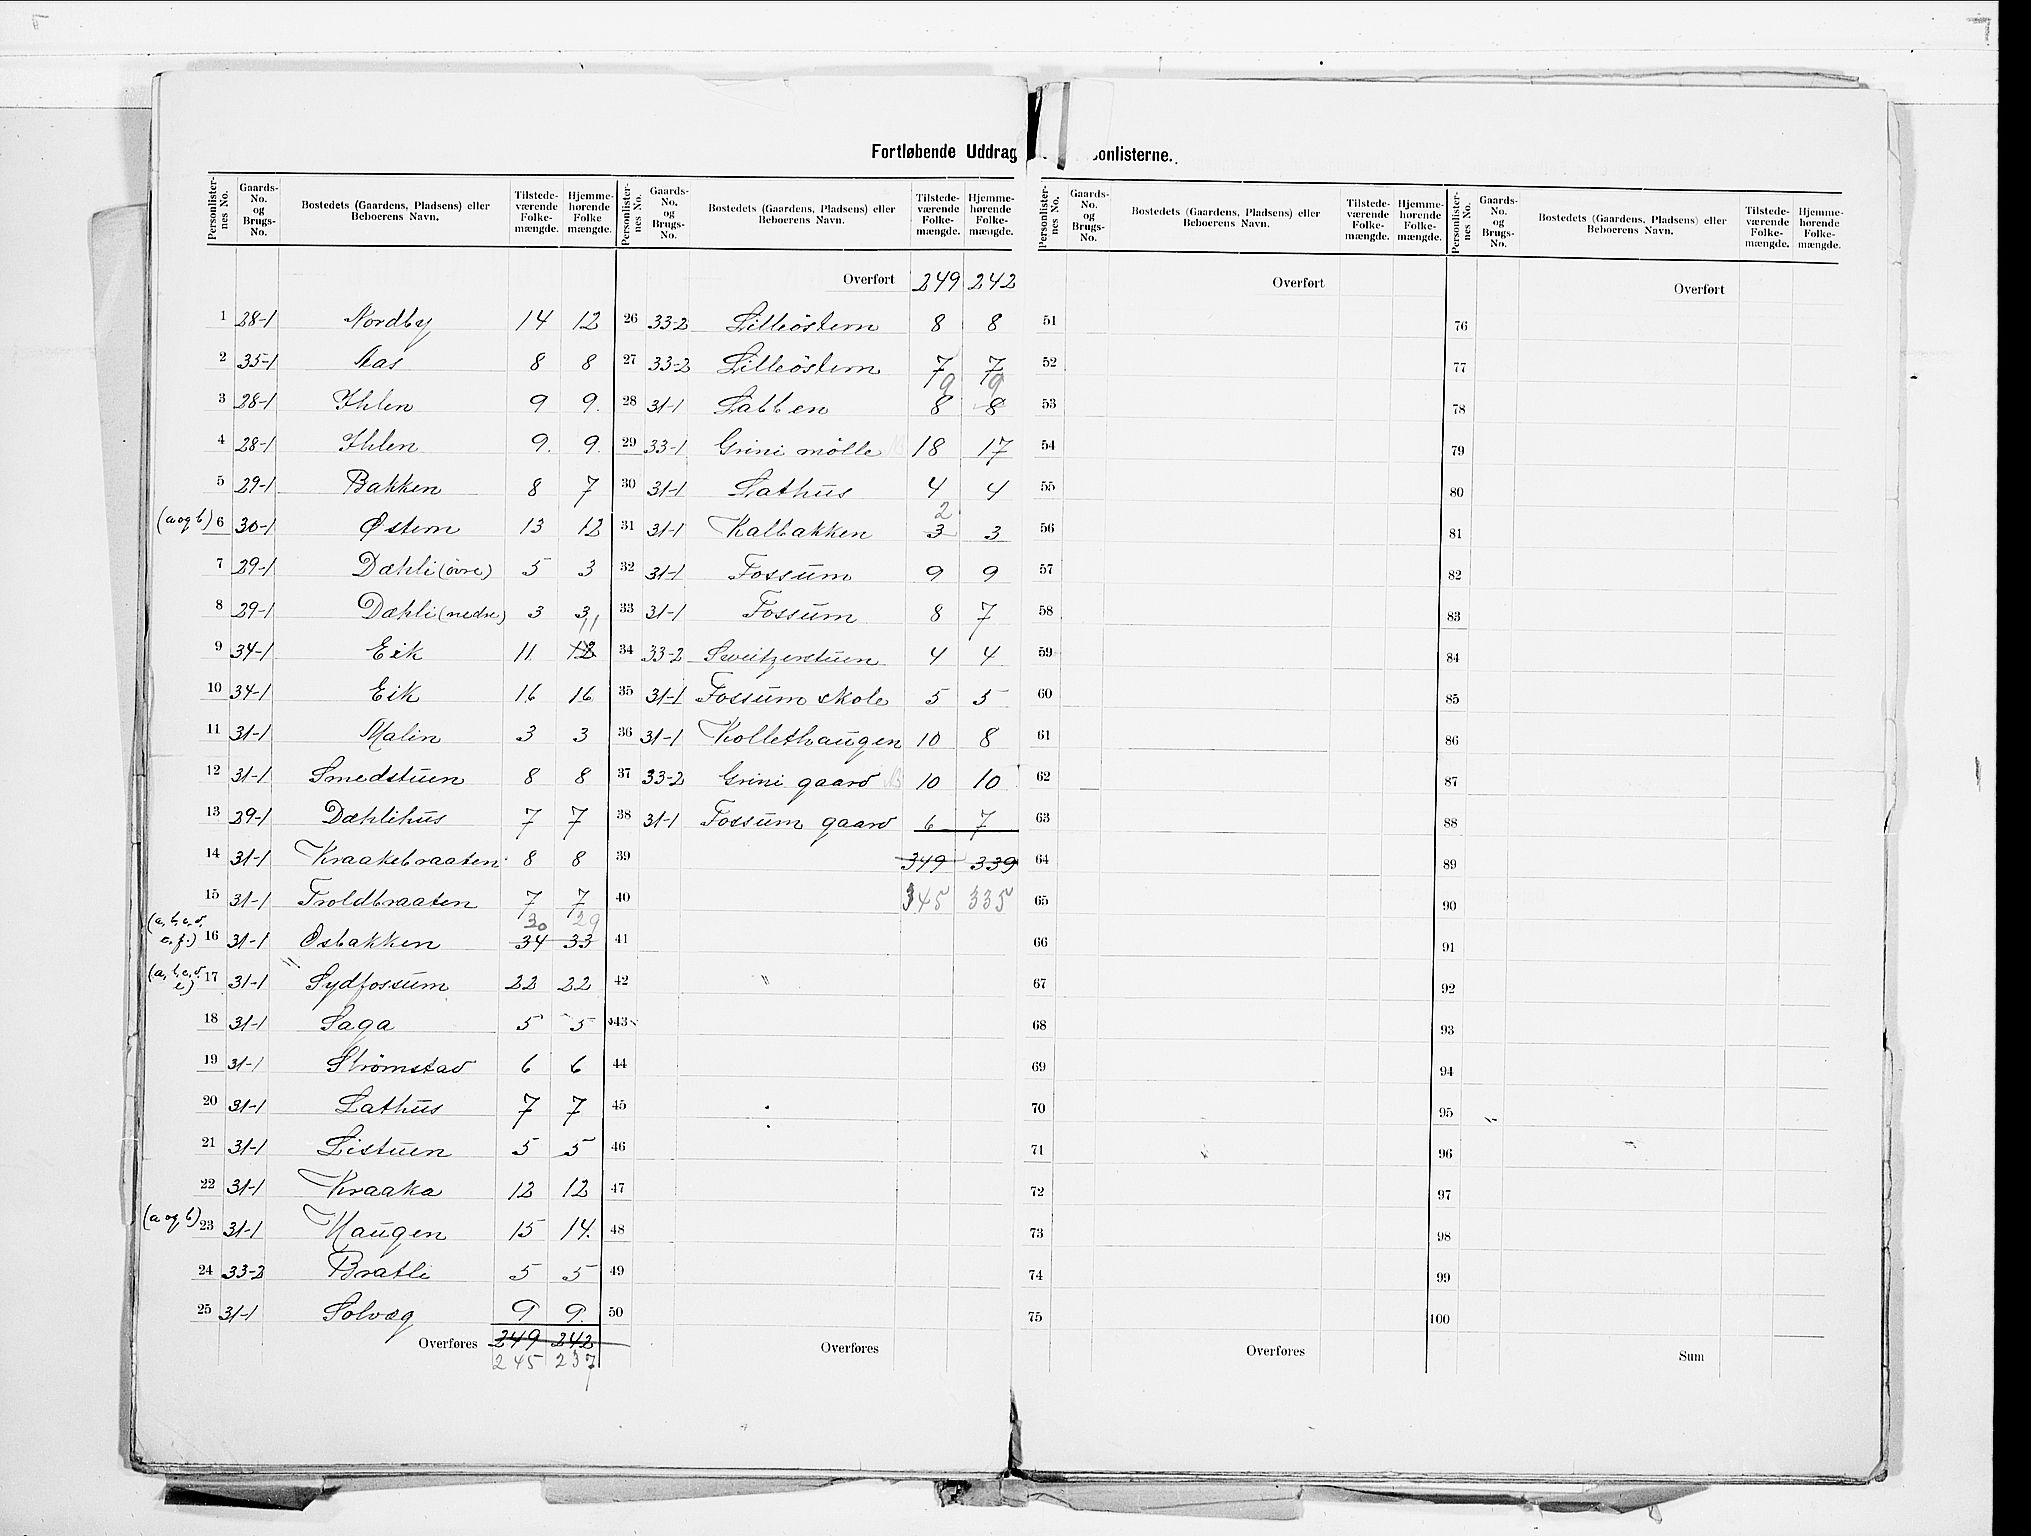 Fortløbende Uddrag onlisterne.
Personlisternes No. Gaards-No. og Brugs-No. Bostedets (Gaardens, Pladsens) eller Beboerens Navn. Tilstedeværende Folkemængde. Hjemmehørende Folkemængde.
1 28-1 Nordby 14 12
2 35-1 Aas 8 8
3 28-1 Ihlen 9 9.
4 28-1 Ihlen 9. 9.
5 29-1 Bakken 8 7
(a og b) 6 30-1 Østern 13 12
7 29-1 Dæhli (övre) 5 3
8 29-1 Dæhli (nedre) 3 3
9 34-1 Eik 11 12 11
10 34-1 Eik 16 16
11 31-1 Malin 3 3
12 31-1 Smedstuen 8 8
13 29-1 Dæhlihus 7 7
14 31-1 Kraakebraaten 8 8
15 31-1 Troldbraaten 7 7
30 29
(a, b, c, d, e, f.) 16 31-1 Osbakken 34 33
(a, b, c, d. e) 17 31-1 Sydfossum 22 22
18 31-1 Saga 5 5
19 31-1 Strömstad 6 6
20 31-1 Lathus 7 7
21 31-1 Listuen 5 5
22 31-1 Kraaka 12 12
(a og b) 23 31-1 Haugen 15 14.
24 33-2 Bratli 5 5
25 31-1 Solvæg 9 9.
Overføres 249 242
245 237
Personlisternes No. Gaards-No. og Brugs-No. Bostedets (Gaardens, Pladsens) eller Beboerens Navn. Tilstedeværende Folkemængde. Hjemmehørende Folkemængde.
Overført 249 242
26 33-2 Lilleöstern 8 8
27 33-2 Lilleöstern 7 7
9 9
28 31-1 Labben 8 8
29 33-1 Grini mölle 18 17
30 31-1 Lathus 4 4
2
31 31-1 Kalbakken 3 3
32 31-1 Fossum 9 9
33 31-1 Fossum 8 7
34 33-2 Sveitzerstuen 4 4
35 31-1 Fossum skole 5 5
36 31-1 Kollethaugen 10 8
37 33-2 Grini gaard 10 10
38 31-1 Fossum gaard 6 7
39 349 339
40 345 335
41
42
43
44
45
46
47
48
49
50
Overføres
Personlisternes No. Gaards-No. og Brugs-No. Bostedets (Gaardens, Pladsens) eller Beboerens Navn. Tilstedeværende Folkemængde. Hjemmehørende Folkemængde.
Overført
51
52
53
54
55
56
57
58
59
60
61
62
63
64
65
66
67
68
69
70
71
72
73
74
75
Overføres
Personlisternes No. Gaards-No. og Brugs-No. Bostedets (Gaardens, Pladsens) eller Beboerens Navn. Tilstedeværende Folkemængde. Hjemmehørende Folkemængde.
Overført
76
77
78
79
80
81
82
83
84
85
86
87
88
89
90
91
92
93
94
95
96
97
98
99
100
Sum